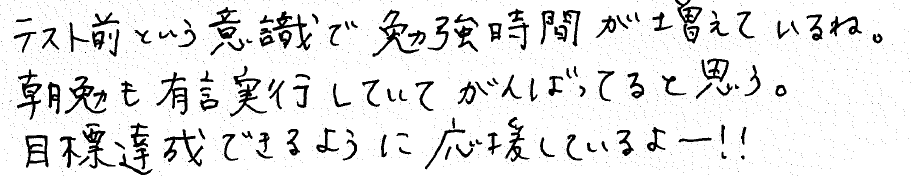 テスト前という意識で勉強時間が増えているね。
朝勉も有言実行していてがんばってると思う。
目標達成できるように応援しているよー!!